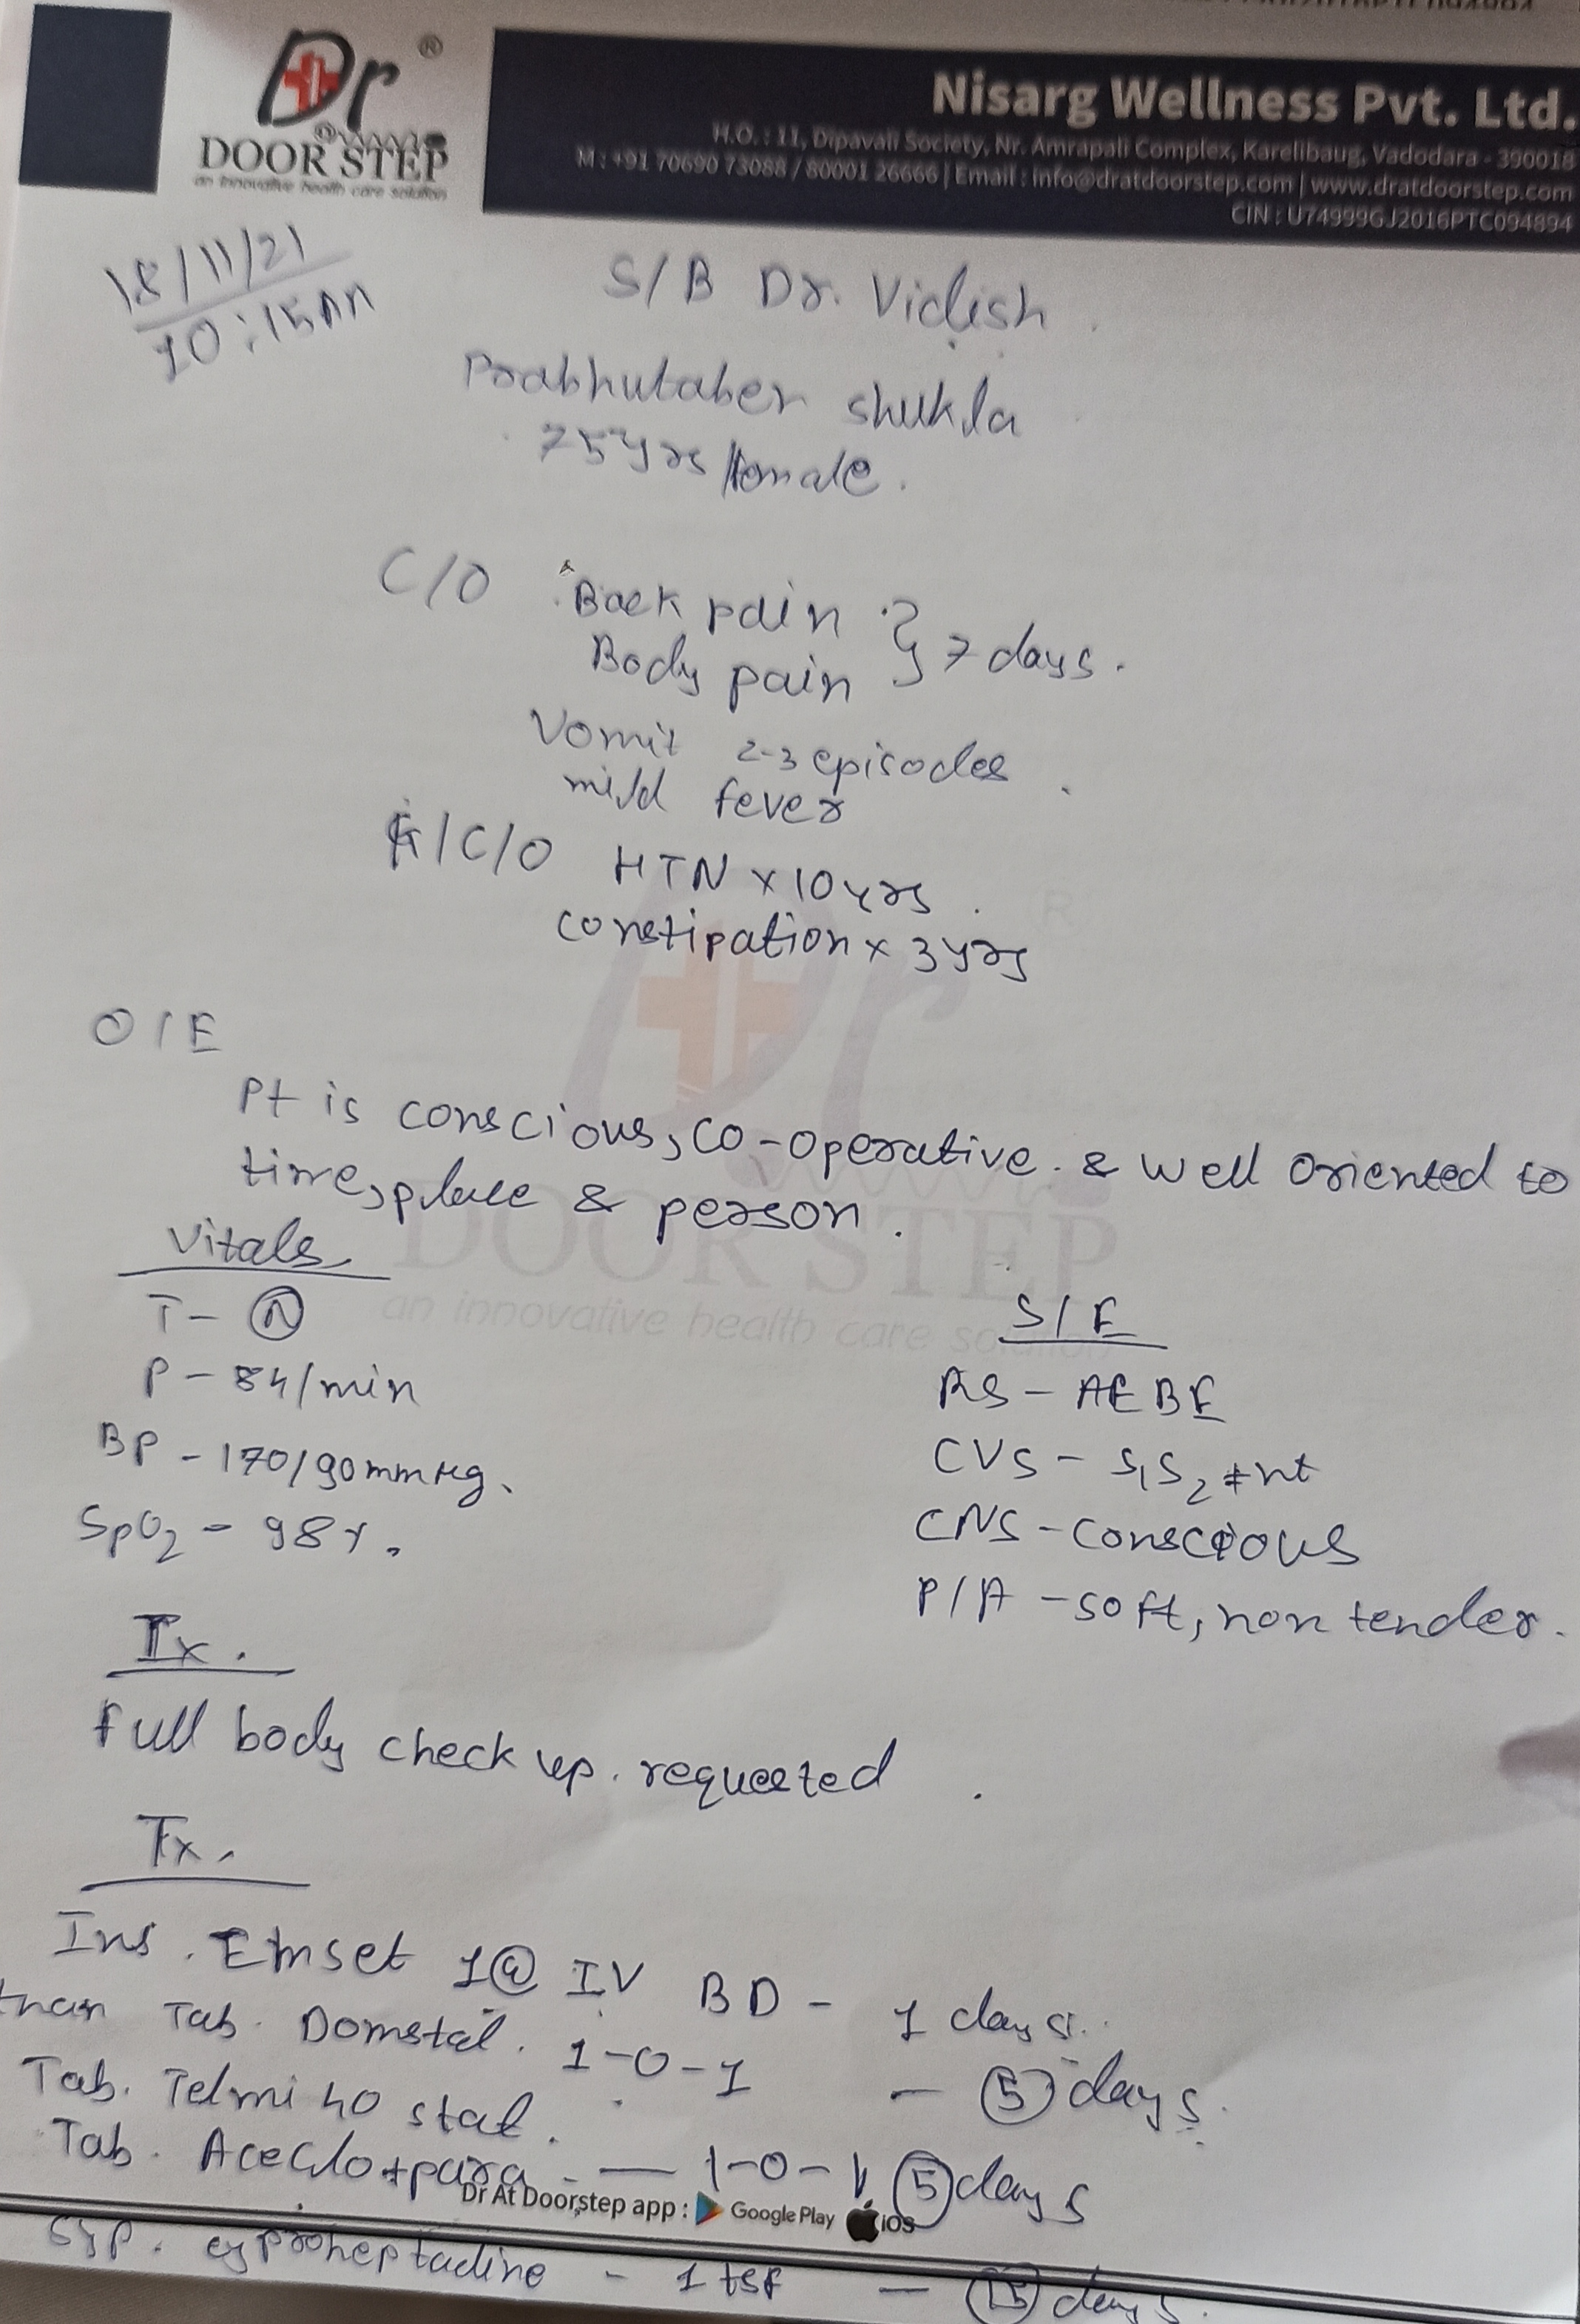 Dr ®
DOOR STEP
an innovative health care solution
Nisarg Wellness Pvt. Ltd.
H.O. : 11, Dipavali Society, Nr. Amrapali Complex, Karelibaug, Vadodara - 390018
M : +91 70690 73088 / 80001 26666 | Email : info@dratdoorstep.com | www.dratdoorstep.com
CIN : U74999GJ2016PTC094894
18/11/21
10:15AM
S/B Dr. Vidish.
Prabhutaben shukla
75yrs/female.
C/O Back pain } 7 days.
Body pain
Vomit 2-3 episodes.
mild fever
K/C/O HTN x 10yrs.
constipation x 3yrs
O/E
Pt is conscious, co-operative & well oriented to
time, place & person.
Vitals
T- N
P - 84/min
BP - 170/90mmHg.
SpO2 - 98%.
S/E
RS - AEBE
CVS - S1S2 +nt
CNS - conscious
P/A - soft, non tender.
Ix.
Full body check up. requested.
Tx.
Inj. Emset 1@ IV BD - 1 days.
Tab. Domstal. 1-0-1 - 5 days.
Tab. Telmi 40 stat.
Tab. Aceclo+para - 1-0-1 5 days
Dr At Doorstep app : Google Play iOS
Syp. cyproheptadine - 1 tsf - 15 days.